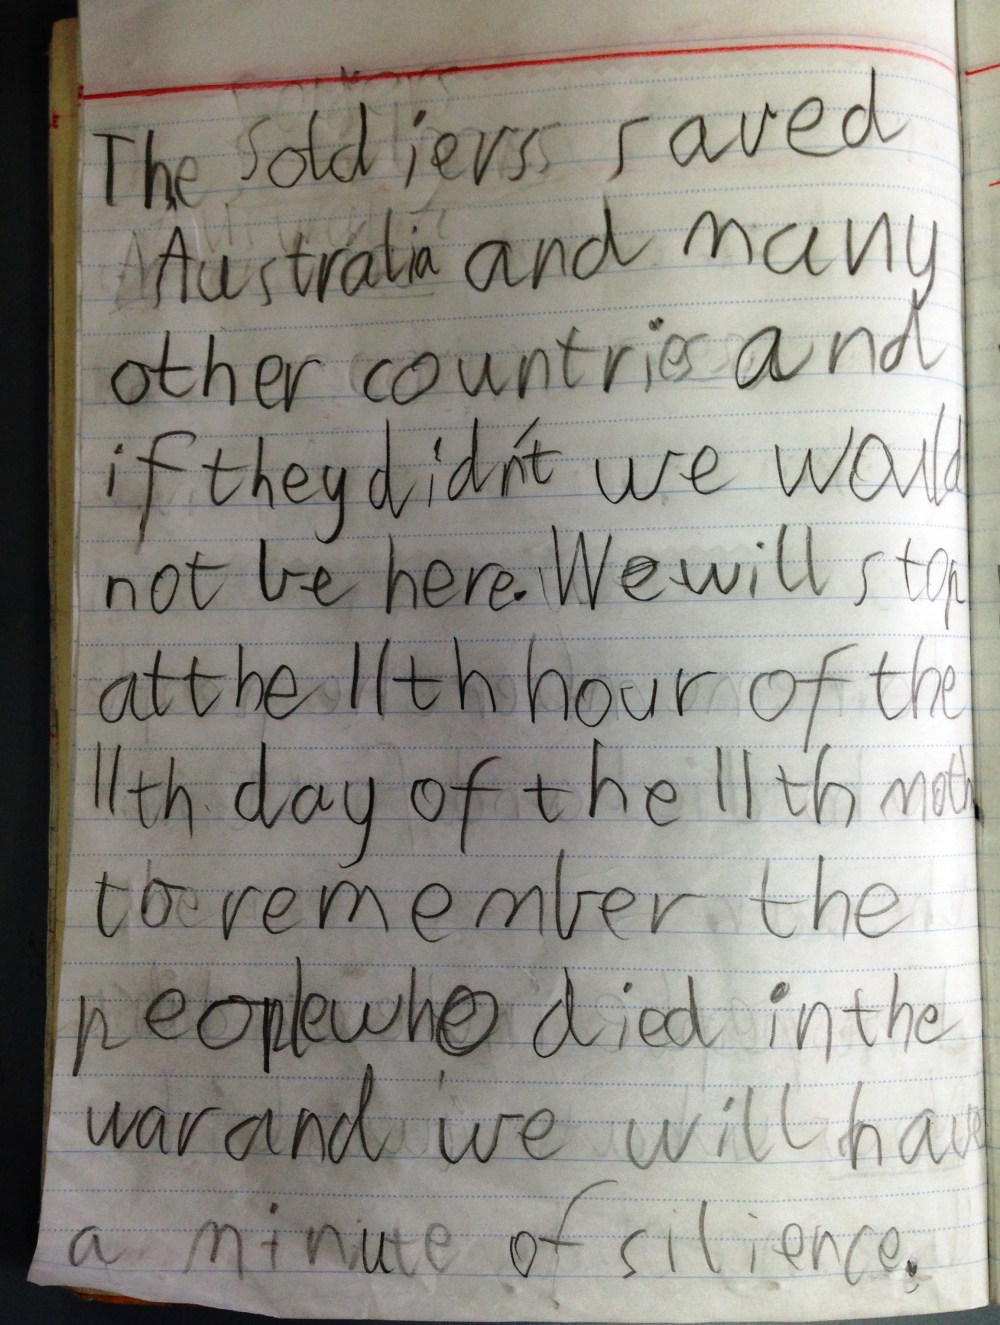 The soldiers saved
Australia and many
other countries and
if they didn't we would
not be here. We will stop
at the 11th hour of the
11th day of the 11th moth
to remember the
people who died in the
war and we will have
a minute of silience.